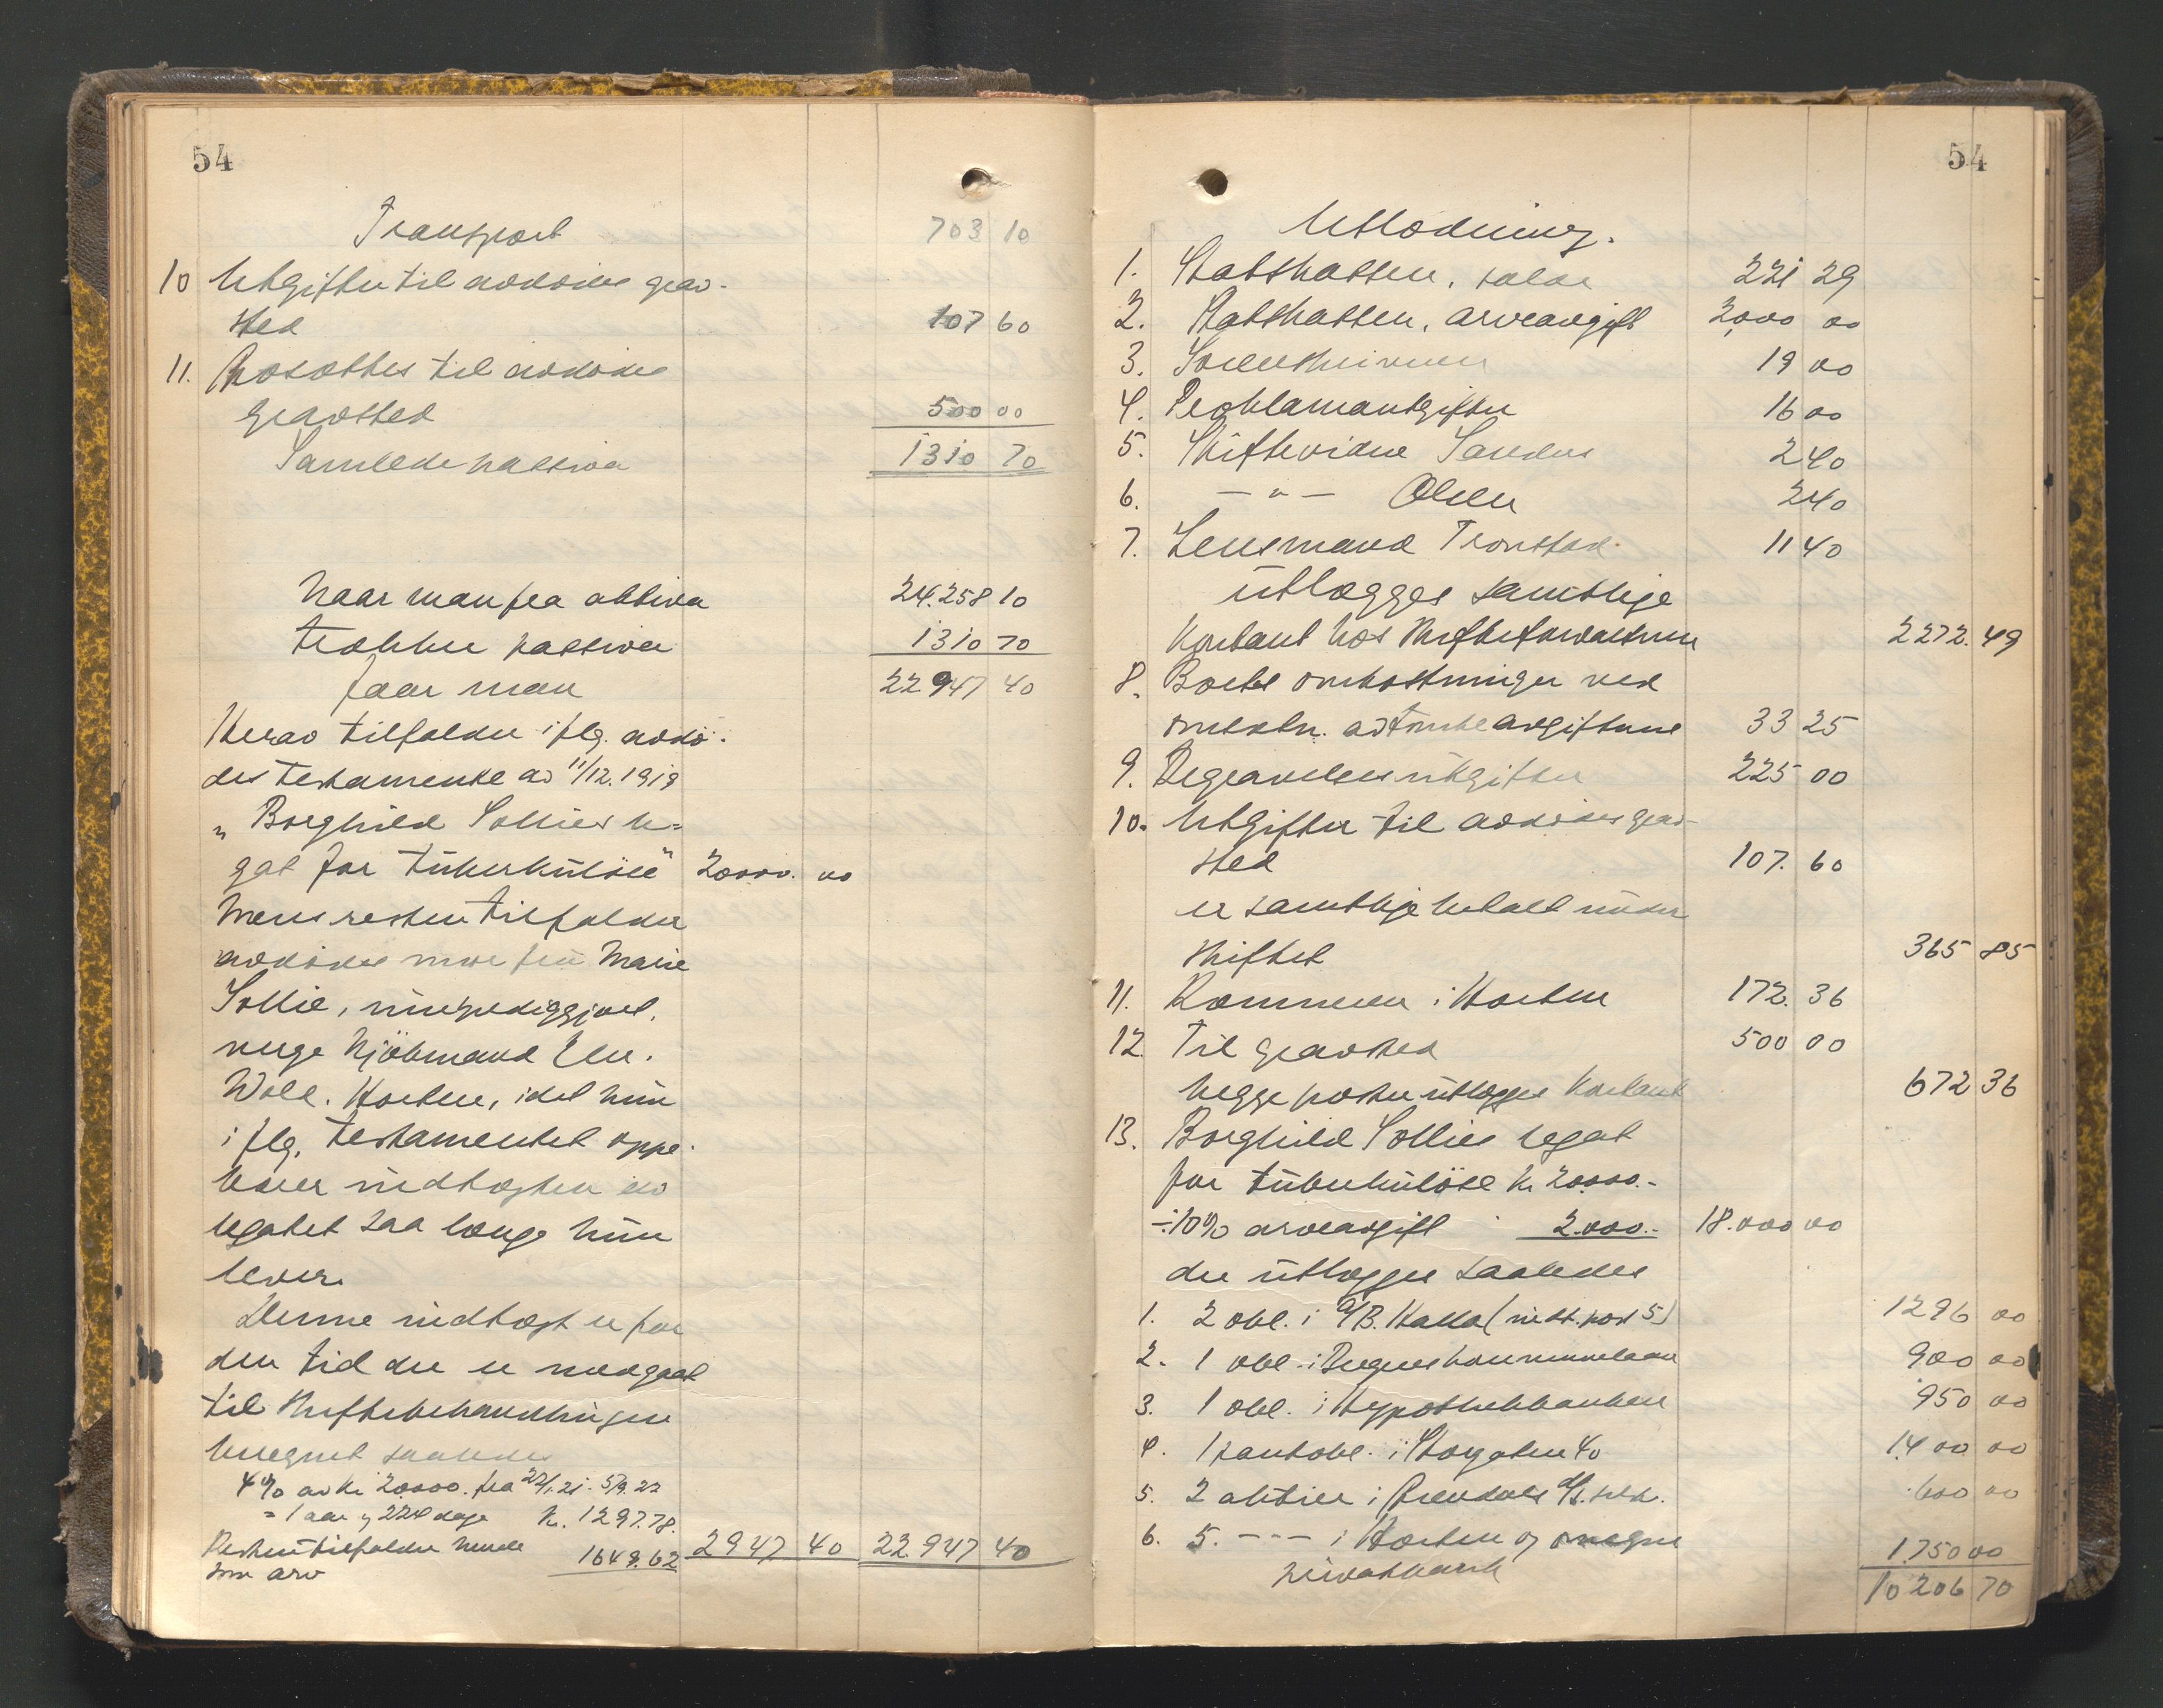 54
Transport 703 10
10 Utgifter til avdødes grav-
sted 107 60
11. Avsættes til avdødes
gravsted 500 00
Samlede passiva 1310 70
Naar man fra aktiva 24.258 10
trækker passiva 1310 70
faar man 22947 40
Herav tilfalder iflg. avdø-
des testamente av 11/12.1919
"Borghild Sollies le-
gat for tuberkuløse" 20000. 00
mens resten tilfalder
avdødes mor fru Marie
Sollie, umyndiggjort,
verge kjøbmand
Woll. Horten, idet hun
iflg. testamentet oppe-
bærer indtægten av
legatet saa længe hun
lever.
Denne indtægt er for
den tid der er medgaat
til skiftebehandlingen
beregnet saaledes
4% av kr 20000. fra 22/1.21 - 5/9.22
= 1 aar og 224 dage kr. 1297.78.
Resten tilfalder hende 1649.62 2947 40 22.947 40
som arv
54
Utlodning.
1. Statskassen, salær 221 29
2. Statskassen, arveavgift 2000 00
3. Sorenskriveren 19 00
4. Proklamautgifter 16 00
5. Skiftevidne Sanden 2 40
6. - " - Olsen 2 40
7. Lensmand Tronstad 11 40
utlægges samtlige
kontant hos skifteforvalteren 2272. 49
8. Boets omkostninger ved
omkostn. av tombeavgiftene 33 25
9. Begravelsesutgifter 225 00
10. Utgifter til avdødes grav-
sted 107. 60
er samtlige betalt under
skiftet 365 85
11. Kæmneren i Horten 172. 36
12. Til gravsted 500 00
begge poster utlægges kontant 672 36
13. Borghild Sollies legat
for tuberkuløse kr 20000.-
÷ 10% arveavgift 2.000.- 18.000 00
der utlægges saaledes
1. 2 obl. i A/B. Kalla (indt. post 5) 1296 00
2. 1 obl. i 900 00
3. 1 obl. i Hypothekbanken 950 00
4. 1 pantobl. i Storgaten 40 1400 00
5. 2 aktier i Arendals 600 00
6. 5. - " - i Horten og omegns 1.750 00
privatbank
10 206 70